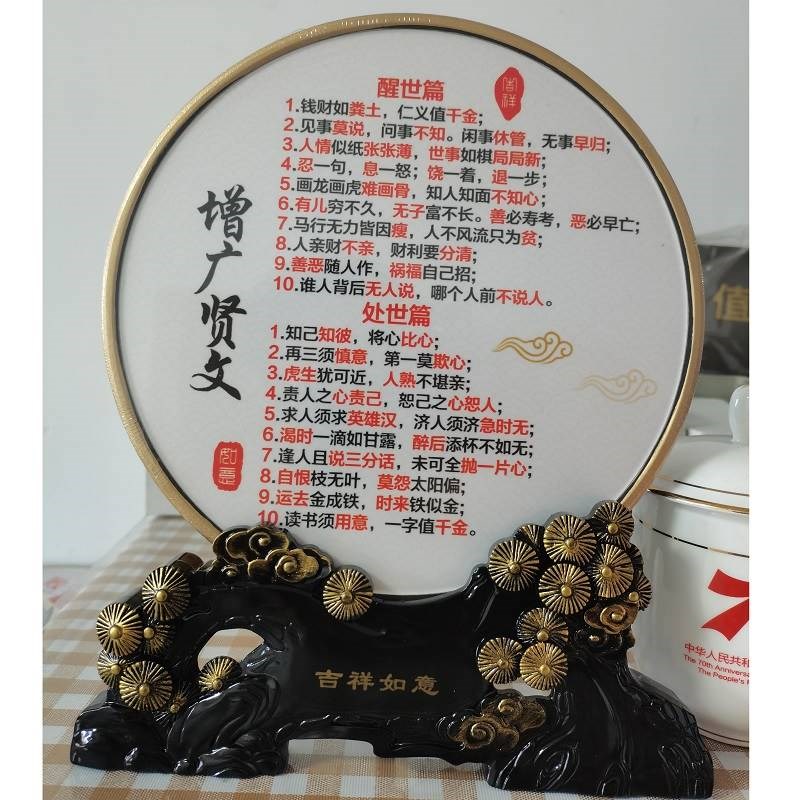 增广贤文
吉祥
醒世篇
1.钱财如粪土，仁义值千金；
2.见事莫说，问事不知。闲事休管，无事早归；
3.人情似纸张张薄，世事如棋局局新；
4.忍一句，息一怒；饶一着，退一步；
5.画龙画虎难画骨，知人知面不知心；
6.有儿穷不久，无子富不长。善必寿考，恶必早亡；
7.马行无力皆因瘦，人不风流只为贫；
8.人亲财不亲，财利要分清；
9.善恶随人作，祸福自己招；
10.谁人背后无人说，哪个人前不说人。
处世篇
1.知己知彼，将心比心；
2.再三须慎意，第一莫欺心；
3.虎生犹可近，人熟不堪亲；
4.责人之心责己，恕己之心恕人；
5.求人须求英雄汉，济人须济急时无；
6.渴时一滴如甘露，醉后添杯不如无；
7.逢人且说三分话，未可全抛一片心；
8.自恨枝无叶，莫怨太阳偏；
9.运去金成铁，时来铁似金；
10.读书须用意，一字值千金。
如意
吉祥如意
值
7
中华人民共和
The 70th Anniversar
The People's